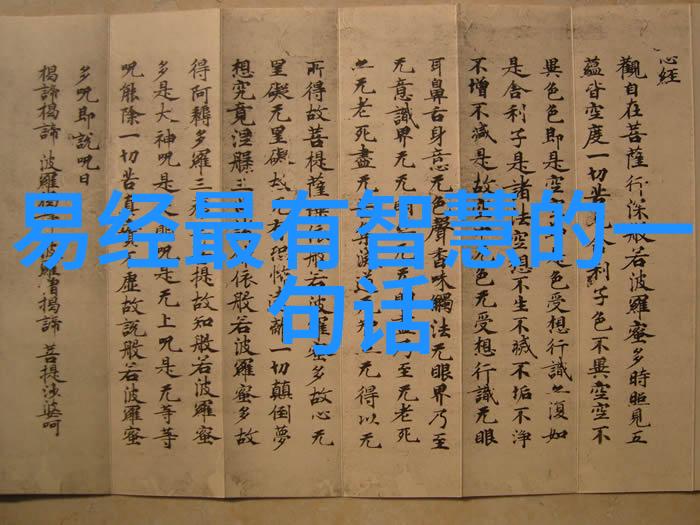 易经最有智慧的一
句话
心经
觀自在菩薩行深般若波羅蜜多時照見五
蘊皆空度一切苦舍利子色不異空空不
異色色即是空是色受想行識亦復如
是舍利子是諸法空想不生不滅不垢不淨
不增不減是故空无色无受想行識无眼
耳鼻舌身意无色聲香味觸法无眼界乃至
无意識界无无明乃至无老死
亦无老死盡无无得以无
所得故菩提薩依般若波羅蜜多故心无
罣礙无罣礙故无恐怖離一切顛倒夢
想究竟涅槃三依般若波羅蜜多故
得阿耨多羅三提故知般若波羅蜜
多是大神呪是大呪是无上呪是无等等
呪能除一切苦真實不虛故說般若波羅蜜
多呪即說呪曰
揭諦揭諦 波羅 波羅僧揭諦 菩提沙婆呵